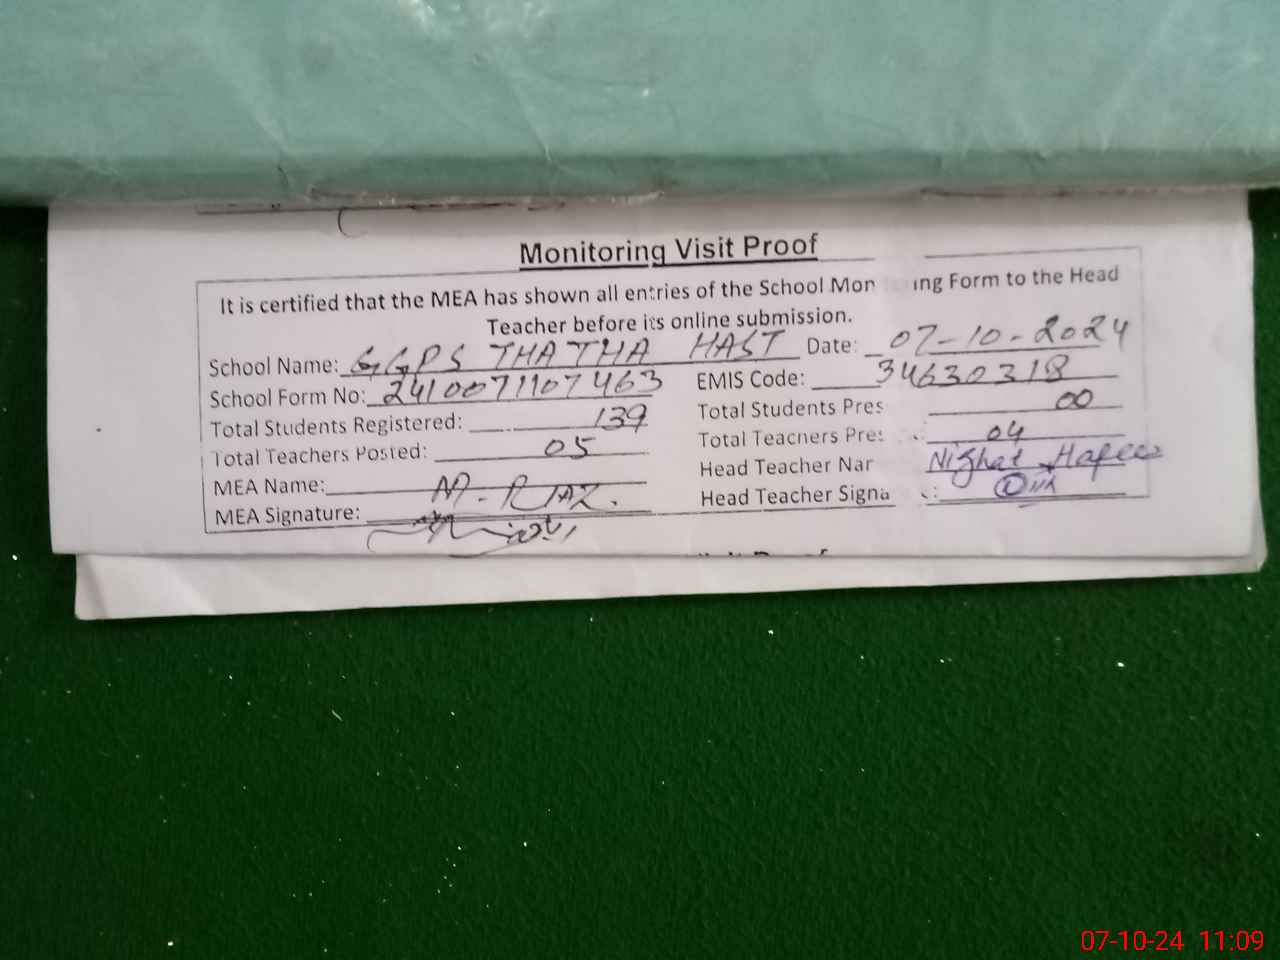 Monitoring Visit Proof
It is certified that the MEA has shown all entries of the School Mon ing Form to the Head
Teacher before its online submission.
School Name: GGPS THATHA HAST Date: 07-10-2024
School Form No: 2410071107463 EMIS Code: 34630318
Total Students Registered: 139 Total Students Pres 00
Total Teachers Posted: 05 Total Teachers Pres 04
MEA Name: M. RIAZ. Head Teacher Nar Nighat Hafeez
MEA Signature: Head Teacher Signa :
07-10-24 11:09